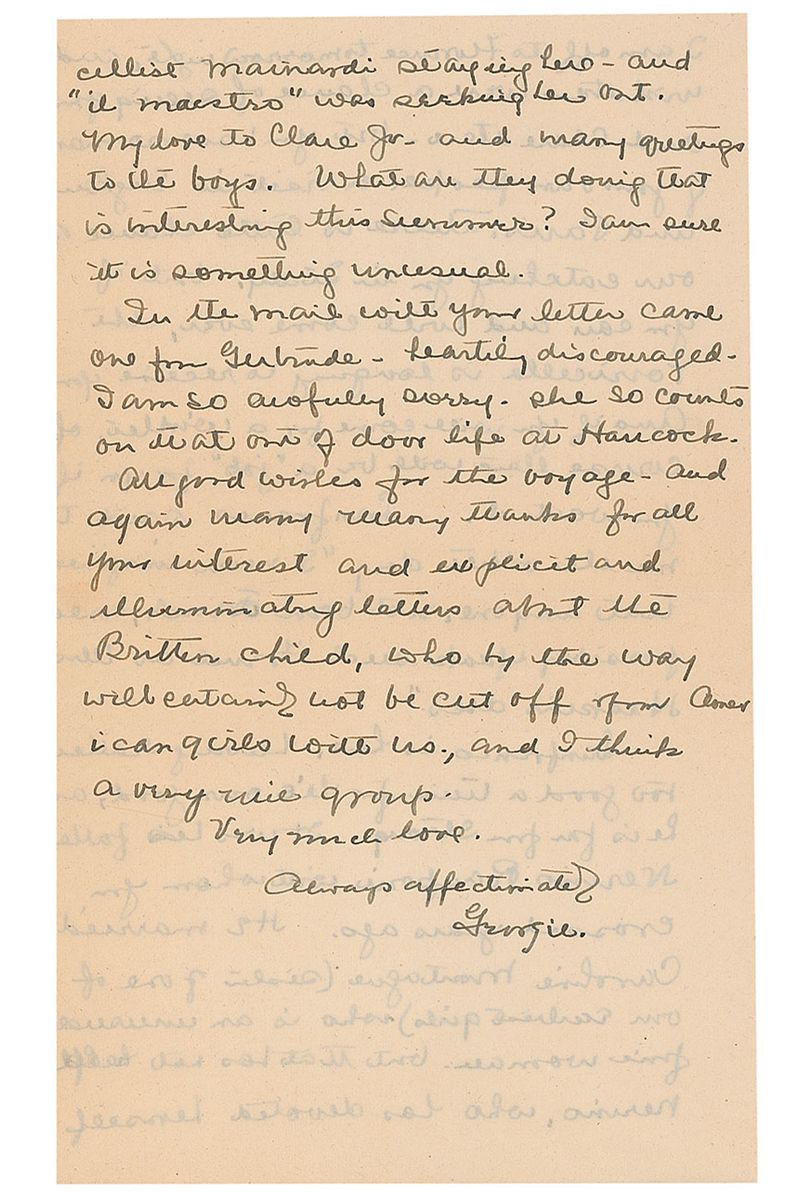 cellist Mainardi staying here - and
"il maestro" was seeking her out.
My love to Clare Jr - and many greetings
to the boys. What are they doing that
is interesting this summer? I am sure
it is something unusual.
In the mail with your letter came
one from Gertrude - heartily discouraged -
I am so awfully sorry. She so counts
on that out of door life at Hancock.
All good wishes for the voyage - and
again many many thanks for all
your interest and explicit and
illuminating letters about the
Britten child, who by the way
will certainly not be cut off from Amer
ican girls with us., and I think
a very nice group.
Very much love.
Always affectionately
Georgie.